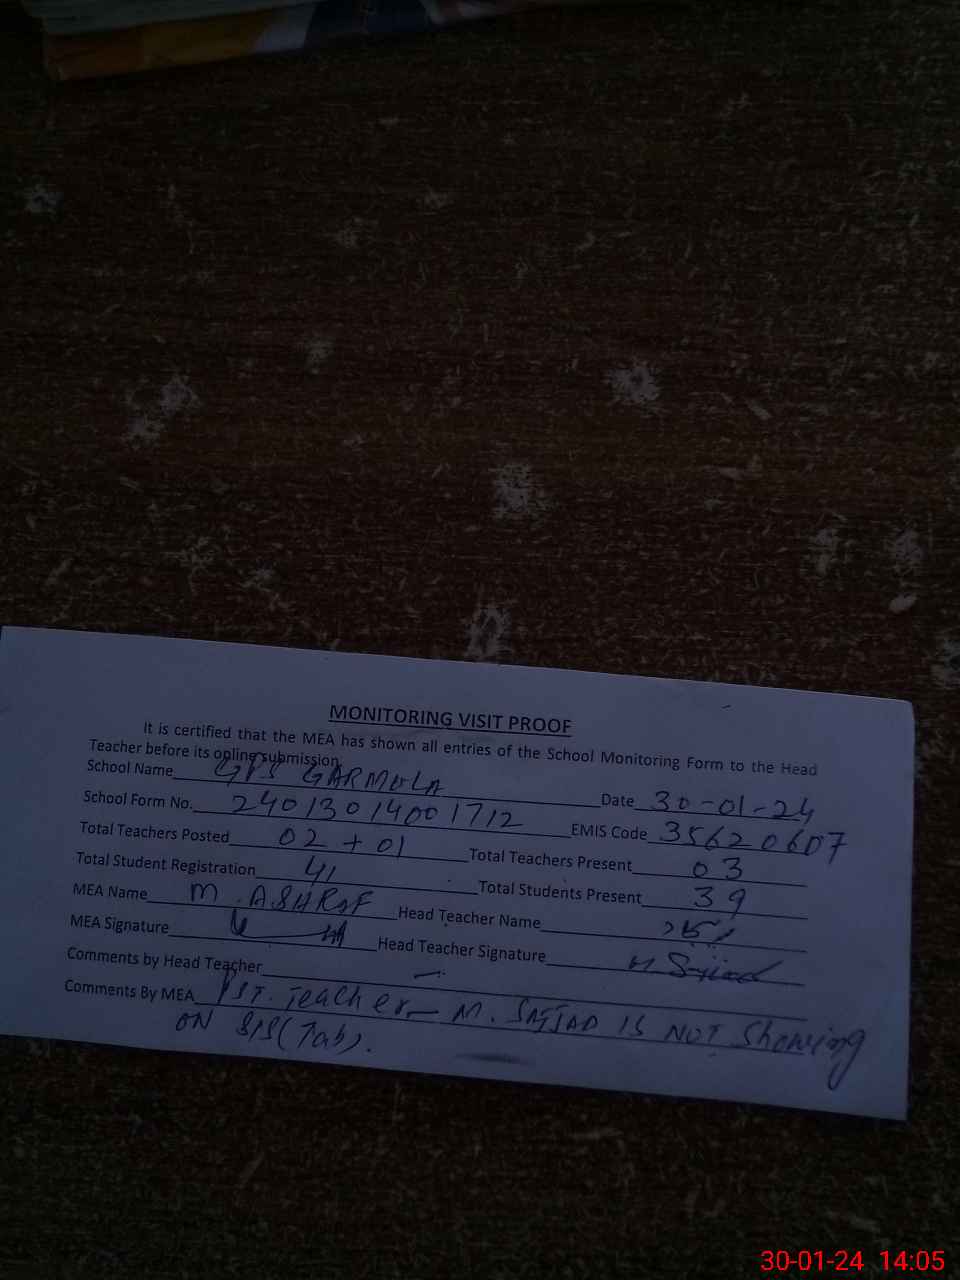 MONITORING VISIT PROOF
It is certified that the MEA has shown all entries of the School Monitoring Form to the Head
Teacher before its online submission.
School Name GPS GARMULA Date 30-01-24
School Form No. 24013014001712 EMIS Code 35620607
Total Teachers Posted 02 + 01 Total Teachers Present 03
Total Student Registration 41 Total Students Present 39
MEA Name M. ASHRAF Head Teacher Name
MEA Signature Head Teacher Signature M Sajjad
Comments by Head Teacher
Comments By MEA PST. Teacher M. SAJJAD IS NOT Showing
ON SIS (Tab).
30-01-24 14:05